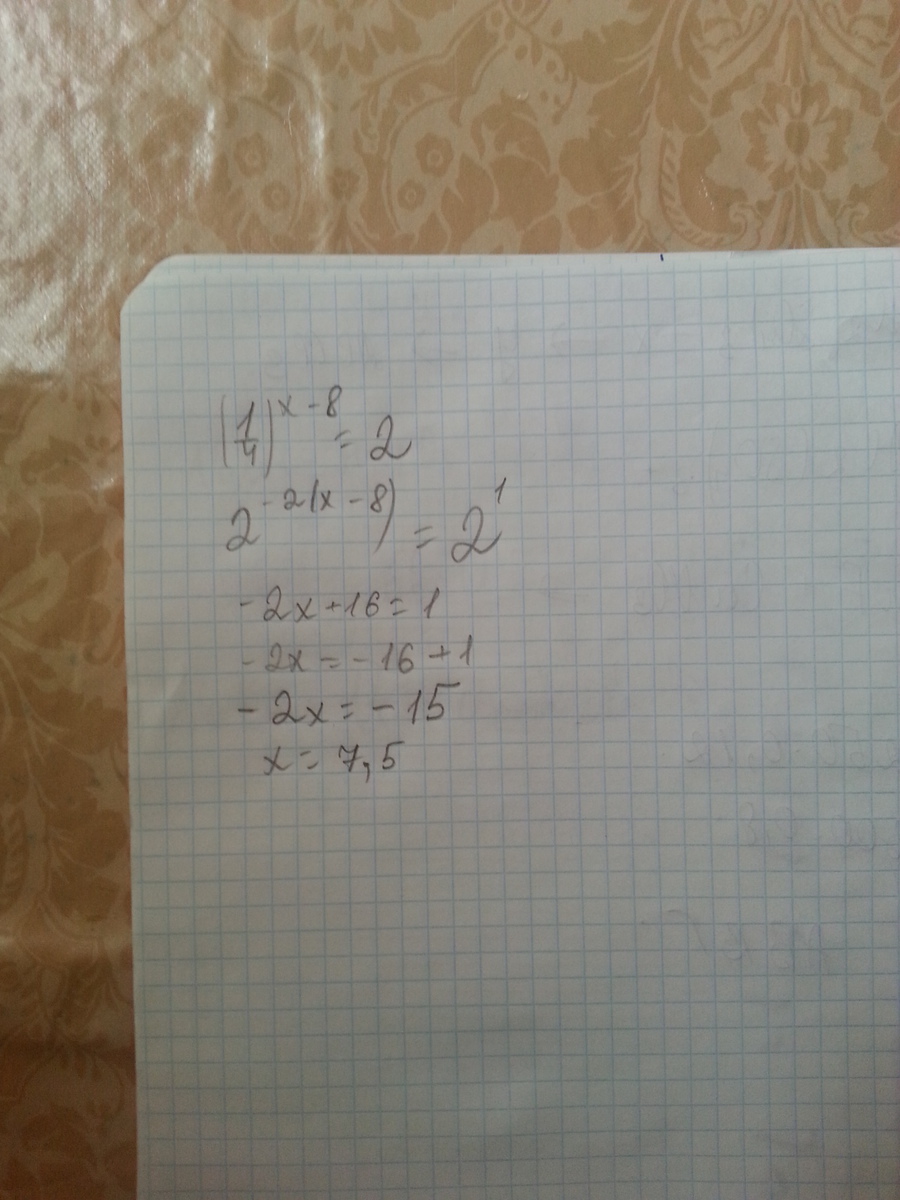 (1/4)^(x-8) = 2
2^(-2(x-8)) = 2^1
-2x+16=1
-2x=-16+1
-2x=-15
x=7,5